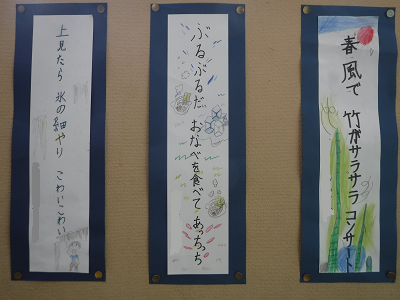 春風で 竹がサラサラ コンサート
ぶるぶるだ おなべを食べて あっちっち
上見たら 氷の細やり こわいこわい